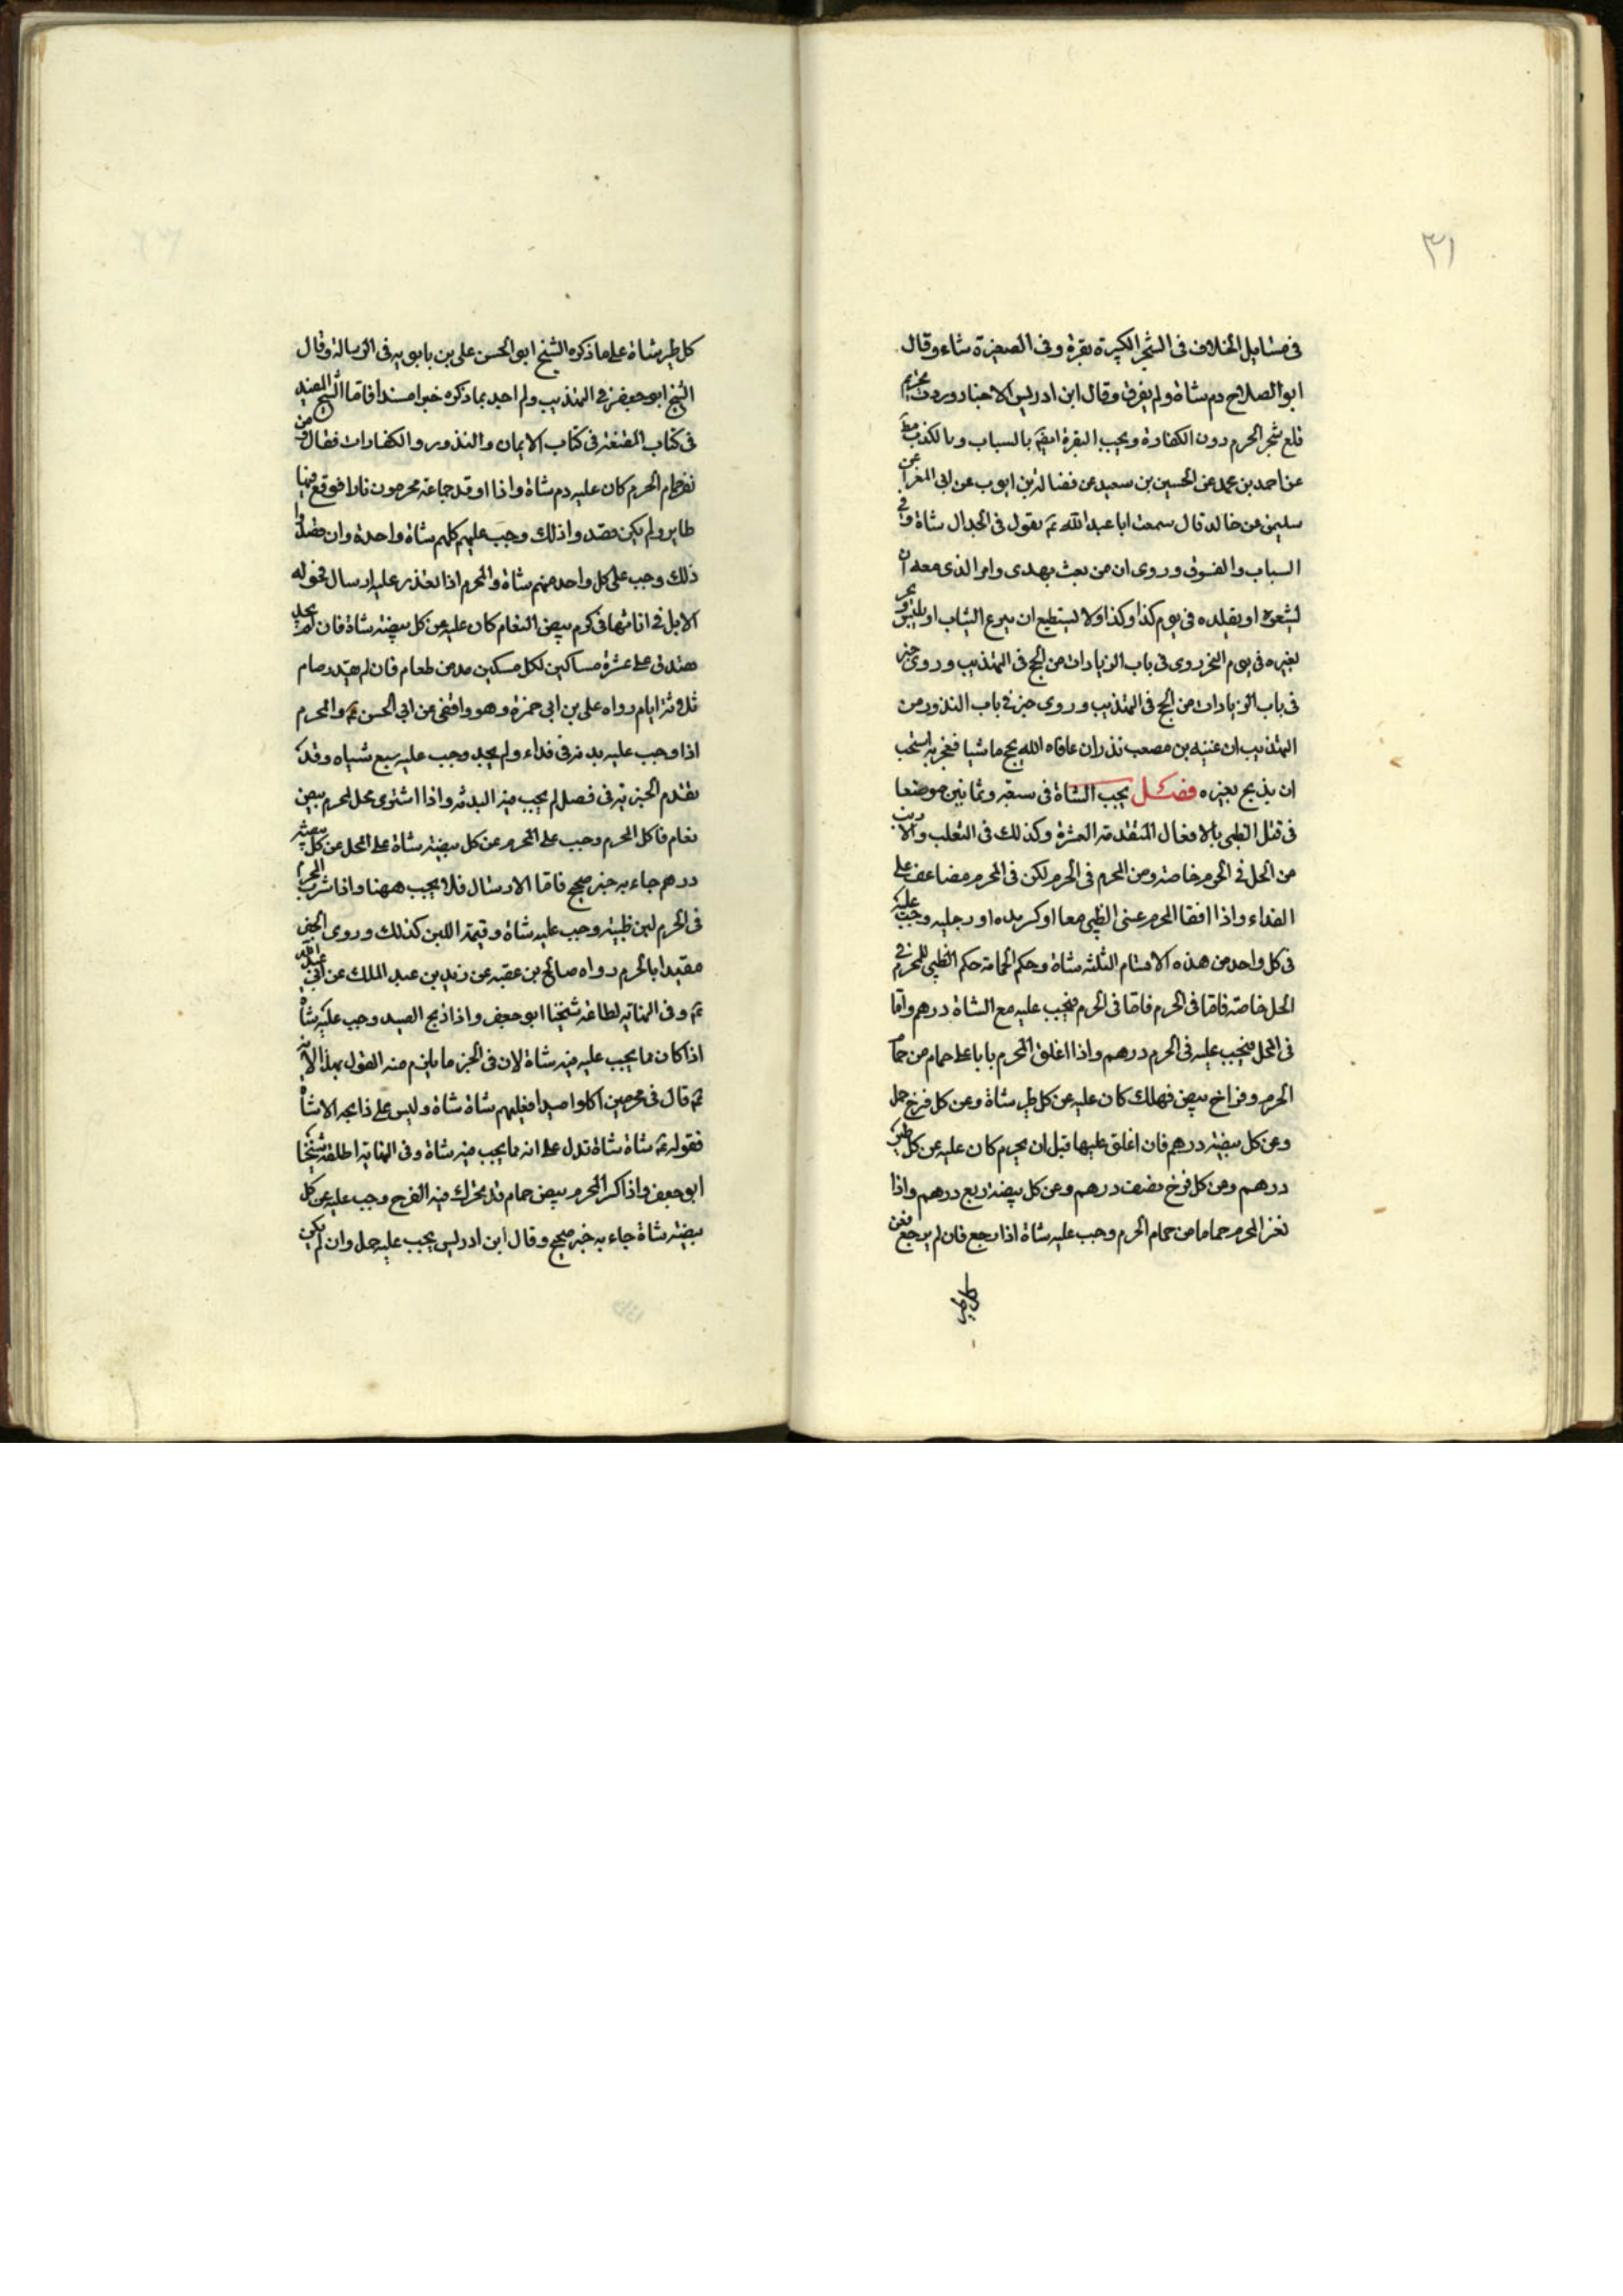 ٣١
فى مسايل الخلاف فى الشجر الكبيرة بقرة وفى الصغيرة شاء وقال
ابو الصلاح دم شاة ولم يفرق وقال ابن ادريس الاخبار وردت بتحريم
قلع شجر الحرم دون الكفارة ويجب البقرة ايضا بالسباب وبالكذب
عن احمد بن محمد عن الحسين بن سعيد عن فضالة بن ايوب عن ابى المغرا عن
سليمن بن خالد قال سمعت ابا عبد الله ع يقول فى الجدال شاة وفى
السباب والفسوق وروى ان من بعث بهدى وامر الذى معه ان
يشعره او يقلده فى يوم كذا وكذا ولا يستطيع ان ينزع الثياب او يلبس
بغيره فى يوم النحر روى فى باب الزيادات من الحج فى التهذيب وروى خبر
فى باب الزيادات من الحج فى التهذيب وروى خبر فى باب النذور من
التهذيب ان عنبسة بن مصعب نذر ان عافاه الله يحج ماشيا فعجز به استحب
ان يذبح بغيره فصل يجب الشاة فى ستة وثمانين موضعا
فى قتل الظبى بالافعال المتقدمة العشرة وكذلك فى الثعلب والارنب
من المحل فى الحرم خاصة ومن المحرم فى الحرم لكن فى المحرم مضاعف على
الفداء واذا افقا المحرم عينى الظبى معا او كسر يده او رجليه وجب عليه
فى كل واحد من هذه الاقسام الثلثة شاة وحكم الحمامة حكم الظبى للمحرم فى
الحل خاصة فاما فى الحرم فاما فى الحرم فيجب عليه مع الشاة درهم واما
فى المحل فيجب عليه فى الحرم درهم واذا اغلق المحرم بابا على حمام من حمام
الحرم وفراخ بيض فهلك كان عليه عن كل طير شاة وعن كل فرخ حمل
وعن كل بيضة درهم فان اغلق عليها قبل ان يحرم كان عليه عن كل طير
درهم وعن كل فرخ نصف درهم وعن كل بيضة ربع درهم واذا
نفر المحرم حماما من حمام الحرم وجب عليه شاة اذا رجع فان لم يرجع فعن
كل طير
كل طير شاة على ما ذكره الشيخ ابو الحسن على بن بابويه فى الرسالة وقال
الشيخ ابو جعفر فى التهذيب ولم اجد بما ذكره خبرا مسندا فاما الشيخ المفيد
فى كتاب المقنعة فى كتاب الايمان والنذور والكفارات فقال ومن
نفر حمام الحرم كان عليه دم شاة واذا اوقد جماعة محرمون نارا فوقع فيها
طاير ولم يكن قصدوا ذلك وجب عليهم كلهم شاة واحدة وان قصدوا
ذلك وجب على كل واحد منهم شاة والمحرم اذا تعذر عليه ارسال فحولة
الابل فى اناثها فى كسر بيض النعام كان عليه عن كل بيضة شاة فان لم يجد
تصدق على عشرة مساكين لكل مسكين مد من طعام فان لم يقدر صام
ثلاثة ايام رواه على بن ابى حمزة وهو واقفى عن ابى الحسن ع والمحرم
اذا وجب عليه بدنة فى فداء ولم يجد وجب عليه سبع شياه وقد
تقدم الخبر به فى فصل لم يجب فيه البدنة واذا اشترى محل لمحرم بيض
نعام فاكل المحرم وجب على المحرم عن كل بيضة شاة على المحل عن كل بيضة
درهم جاء به خبر صحيح فاما الارسال فلا يجب ههنا واذا شرب المحرم
فى الحرم لبن ظبية وجب عليه شاة وقيمة اللبن كذلك وروى الخبر
مقيدا بالحرم رواه صالح بن عقبة عن يزيد بن عبد الملك عن ابى عبد الله
ع وفى النهاية لطاعة شيخنا ابو جعفر واذا ذبح الصيد وجب عليه شاة
اذا كان مما يجب عليه فيه شاة لان فى الخبر ما يلزم منه القول بهذا لانه
ع قال فى محرمين اكلوا صيدا فعليهم شاة شاة وليس على ذابحه الا شاة
فقوله ع شاة شاة تدل على انه مما يجب فيه شاة وفى النهاية اطلقه شيخنا
ابو جعفر واذا كسر المحرم بيض حمام قد تحرك فيه الفرخ وجب عليه عن كل
بيضة شاة جاء به خبر صحيح وقال ابن ادريس يجب عليه حمل وان لم يكن